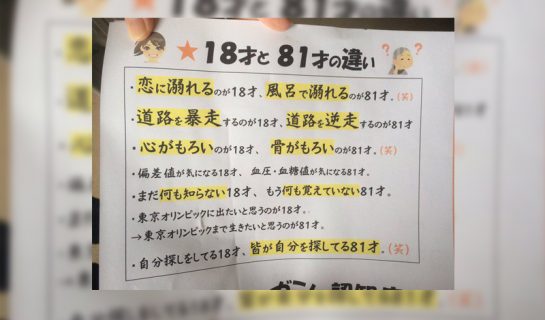 ★18才と81才の違い
? ?
・恋に溺れるのが18才、風呂で溺れるのが81才。(笑)
・道路を暴走するのが18才、道路を逆走するのが81才
・心がもろいのが18才、 骨がもろいのが81才。(笑)
・偏差値が気になる18才、血圧・血糖値が気になる81才。
・まだ何も知らない18才、もう何も覚えていない81才。
・東京オリンピックに出たいと思うのが18才。
→東京オリンピックまで生きたいと思うのが81才。
・自分探しをしてる18才、皆が自分を探してる81才。(笑)